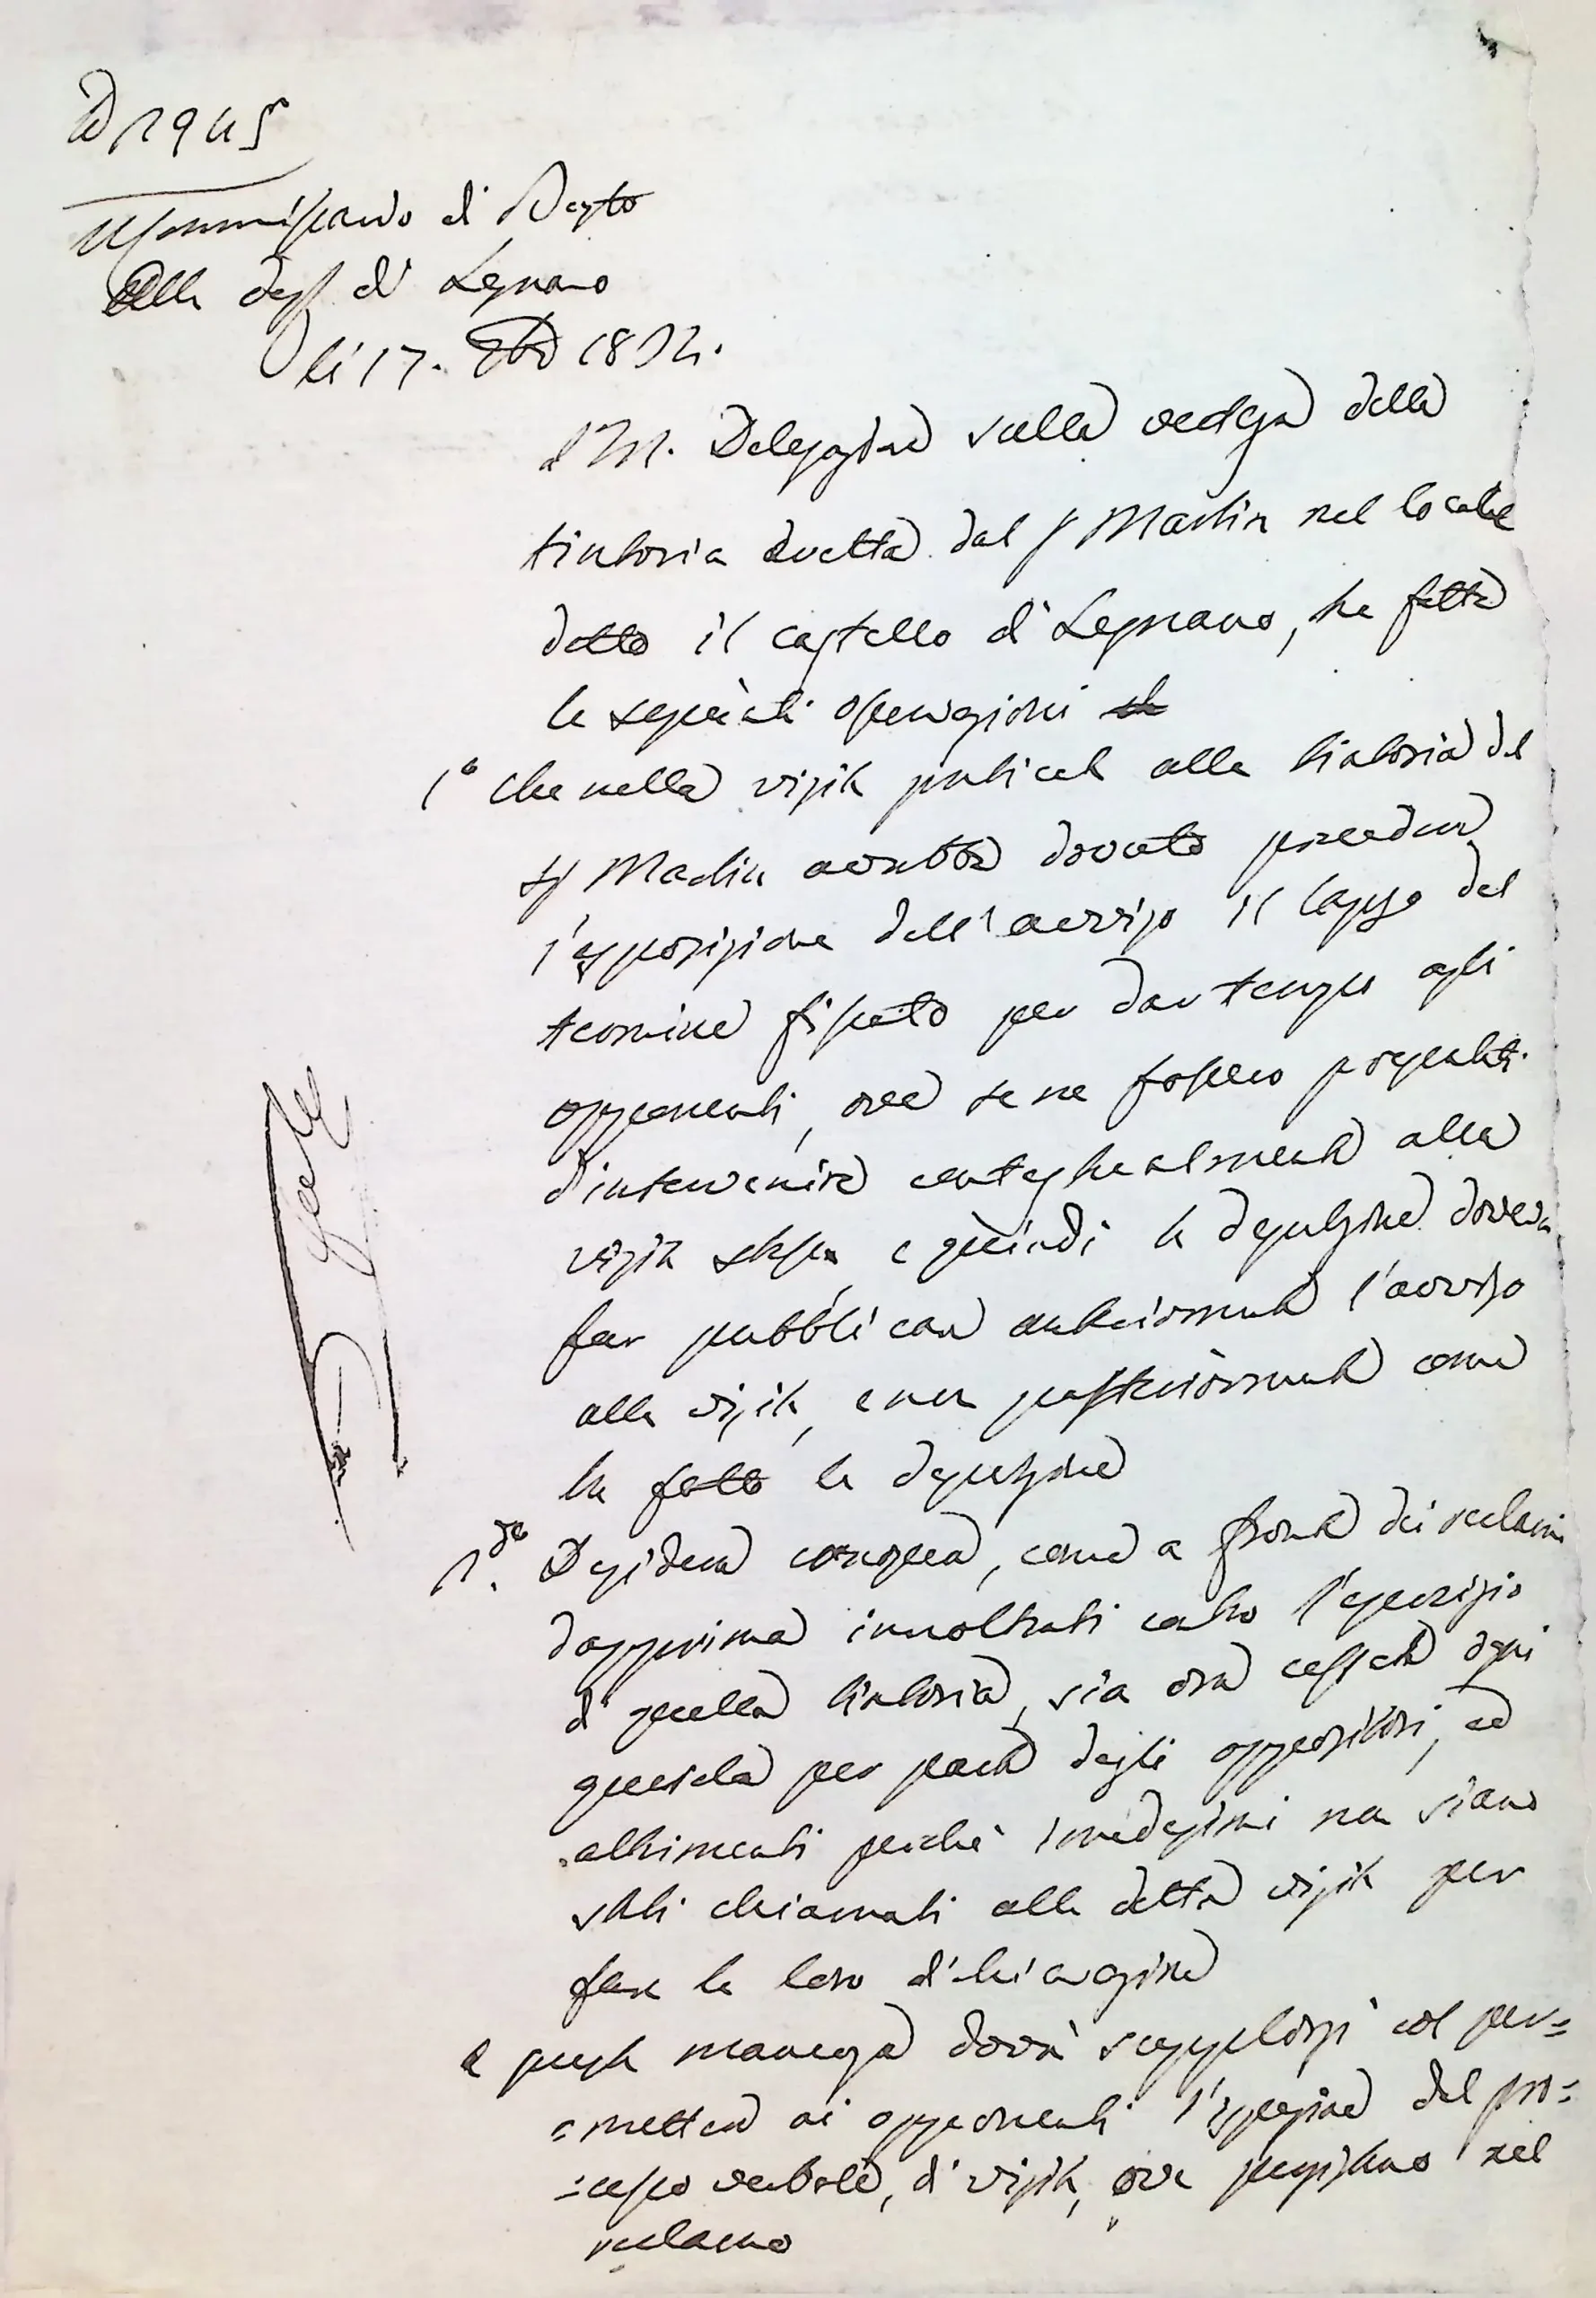 N 2945
Commissario di Busto
Alla Dep. di Legnano
li 17. 8bre 1832.
I. R. Delegazione sulla vertenza della
tintoria eretta dal Sr Martin nel locale
detto il castello di Legnano, ha fatte
le seguenti osservazioni
1° Che nella visita praticata alla tintoria del
Sr Martin avrebbe dovuto precedere
l'esposizione dell'avviso il lasso del
termine fissato per dar tempo agli
opponenti, ove se ne fossero presentati
d'intervenire alla
visita stessa, e quindi la deputazione doveva
far pubblicare anteriormente l'avviso
alla visita, e non posteriormente come
ha fatto la deputazione
2do Desidera conoscere, come a fronte dei reclami
dapprima innoltrati contro l'esercizio
di quella tintoria, sia ora cessata ogni
querela per parte degli oppositori, ed
altrimenti perchè i medesimi non siano
stati chiamati alla detta visita per
fare le loro dichiarazione
A questa mancanza dovrà supplirsi col per=
=mettere ai opponenti l'ispezione del pro=
=cesso verbale, di visita, ove persistano nel
reclamo